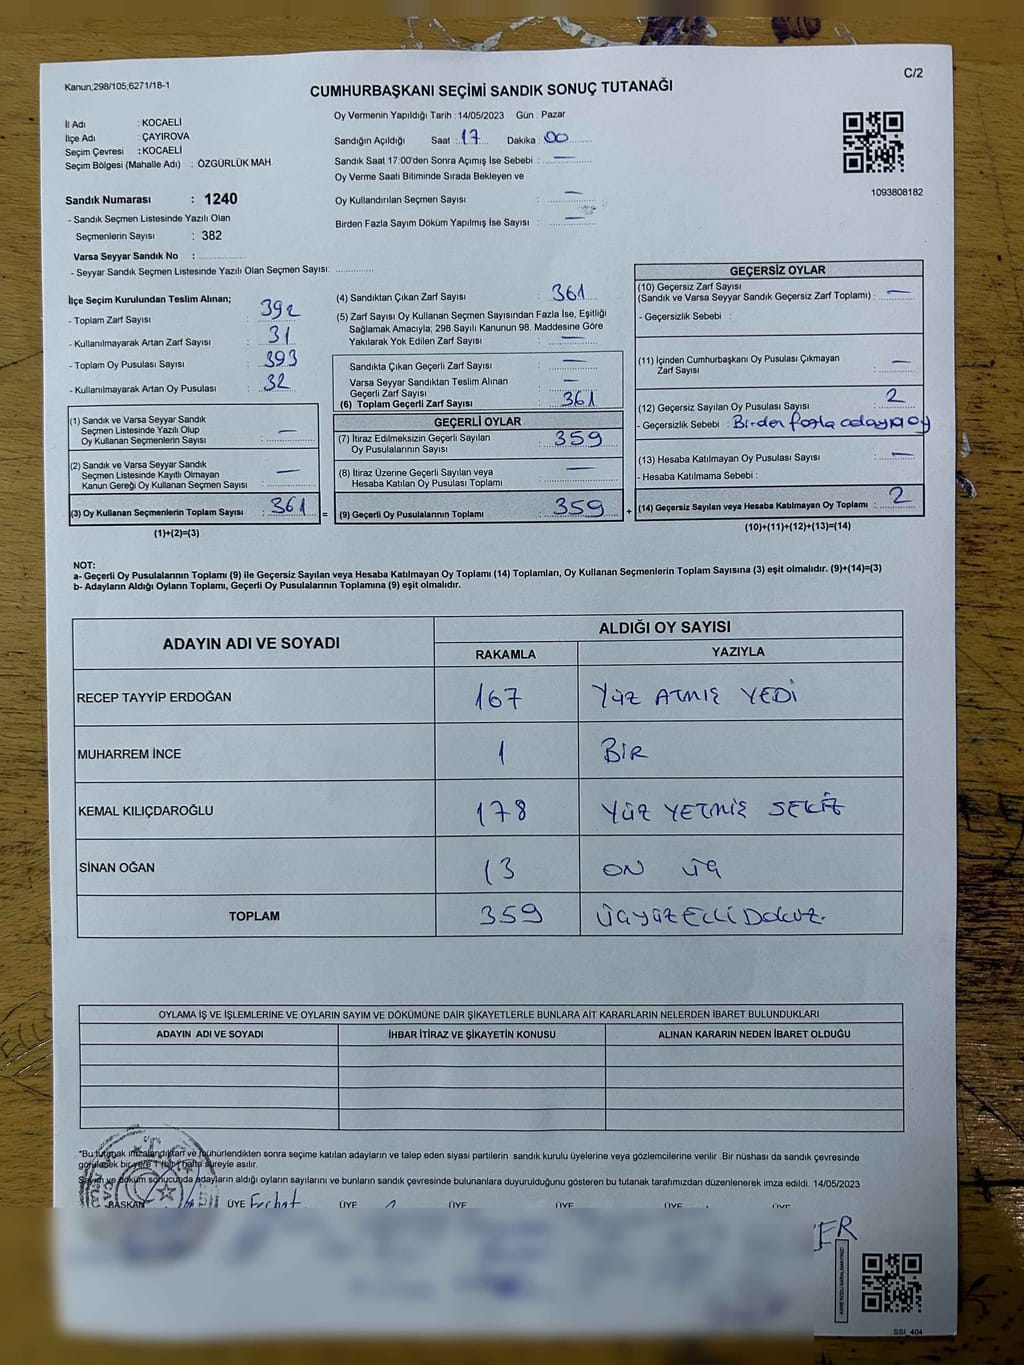 Kanun;298/105;6271/18-1
C/2
CUMHURBAŞKANI SEÇİMİ SANDIK SONUÇ TUTANAĞI
İl Adı : KOCAELİ
İlçe Adı : ÇAYIROVA
Seçim Çevresi : KOCAELİ
Seçim Bölgesi (Mahalle Adı) : ÖZGÜRLÜK MAH.
Sandık Numarası : 1240
- Sandık Seçmen Listesinde Yazılı Olan
Seçmenlerin Sayısı : 382
Varsa Seyyar Sandık No :
- Seyyar Sandık Seçmen Listesinde Yazılı Olan Seçmen Sayısı:
Oy Vermenin Yapıldığı Tarih : 14/05/2023 Gün : Pazar
Sandığın Açıldığı Saat : 17 Dakika : 00
Sandık Saat 17:00'den Sonra Açımış İse Sebebi : —
Oy Verme Saati Bitiminde Sırada Bekleyen ve
Oy Kullandırılan Seçmen Sayısı : —
Birden Fazla Sayım Döküm Yapılmış İse Sayısı : —
1093808182
İlçe Seçim Kurulundan Teslim Alınan;
- Toplam Zarf Sayısı : 392
- Kullanılmayarak Artan Zarf Sayısı : 31
- Toplam Oy Pusulası Sayısı : 393
- Kullanılmayarak Artan Oy Pusulası : 32
(1) Sandık ve Varsa Seyyar Sandık
Seçmen Listesinde Yazılı Olup
Oy Kullanan Seçmenlerin Sayısı : —
(2) Sandık ve Varsa Seyyar Sandık
Seçmen Listesinde Kayıtlı Olmayan
Kanun Gereği Oy Kullanan Seçmen Sayısı : —
(3) Oy Kullanan Seçmenlerin Toplam Sayısı : 361 =
(1)+(2)=(3)
(4) Sandıktan Çıkan Zarf Sayısı : 361
(5) Zarf Sayısı Oy Kullanan Seçmen Sayısından Fazla İse, Eşitliği
Sağlamak Amacıyla; 298 Sayılı Kanunun 98. Maddesine Göre
Yakılarak Yok Edilen Zarf Sayısı : —
Sandıkta Çıkan Geçerli Zarf Sayısı : —
Varsa Seyyar Sandıktan Teslim Alınan
Geçerli Zarf Sayısı : —
(6) Toplam Geçerli Zarf Sayısı : 361
GEÇERLİ OYLAR
(7) İtiraz Edilmeksizin Geçerli Sayılan
Oy Pusulalarının Sayısı : 359
(8) İtiraz Üzerine Geçerli Sayılan veya
Hesaba Katılan Oy Pusulası Toplamı : —
(9) Geçerli Oy Pusulalarının Toplamı : 359 +
GEÇERSİZ OYLAR
(10) Geçersiz Zarf Sayısı
(Sandık ve Varsa Seyyar Sandık Geçersiz Zarf Toplamı) : —
- Geçersizlik Sebebi :
(11) İçinden Cumhurbaşkanı Oy Pusulası Çıkmayan
Zarf Sayısı : —
(12) Geçersiz Sayılan Oy Pusulası Sayısı : 2
- Geçersizlik Sebebi : Birden fazla adaya oy
(13) Hesaba Katılmayan Oy Pusulası Sayısı : —
- Hesaba Katılmama Sebebi :
(14) Geçersiz Sayılan veya Hesaba Katılmayan Oy Toplamı : 2
(10)+(11)+(12)+(13)=(14)
NOT:
a- Geçerli Oy Pusulalarının Toplamı (9) ile Geçersiz Sayılan veya Hesaba Katılmayan Oy Toplamı (14) Toplamları, Oy Kullanan Seçmenlerin Toplam Sayısına (3) eşit olmalıdır. (9)+(14)=(3)
b- Adayların Aldığı Oyların Toplamı, Geçerli Oy Pusulalarının Toplamına (9) eşit olmalıdır.
ADAYIN ADI VE SOYADI
ALDIĞI OY SAYISI
RAKAMLA YAZIYLA
RECEP TAYYİP ERDOĞAN 167 YÜZ ATMIŞ YEDİ
MUHARREM İNCE 1 BİR
KEMAL KILIÇDAROĞLU 178 YÜZ YETMİŞ SEKİZ
SİNAN OĞAN 13 ON ÜÇ
TOPLAM 359 ÜÇYÜZELLİDOKUZ.
OYLAMA İŞ VE İŞLEMLERİNE VE OYLARIN SAYIM VE DÖKÜMÜNE DAİR ŞİKAYETLERLE BUNLARA AİT KARARLARIN NELERDEN İBARET BULUNDUKLARI
ADAYIN ADI VE SOYADI İHBAR İTİRAZ VE ŞİKAYETİN KONUSU ALINAN KARARIN NEDEN İBARET OLDUĞU
*Bu tutanak imzalandıktan ve mühürlendikten sonra seçime katılan adayların ve talep eden siyasi partilerin sandık kurulu üyelerine veya gözlemcilerine verilir Bir nüshası da sandık çevresinde
görülecek bir yere 1 (bir) hafta süreyle asılır.
Sayım ve döküm sonucunda adayların aldığı oyların sayılarını ve bunların sandık çevresinde bulunanlara duyurulduğunu gösteren bu tutanak tarafımızdan düzenlenerek imza edildi. 14/05/2023
BAŞKAN ÜYE Ferhat ÜYE ÜYE ÜYE ÜYE ÜYE
SSI_404